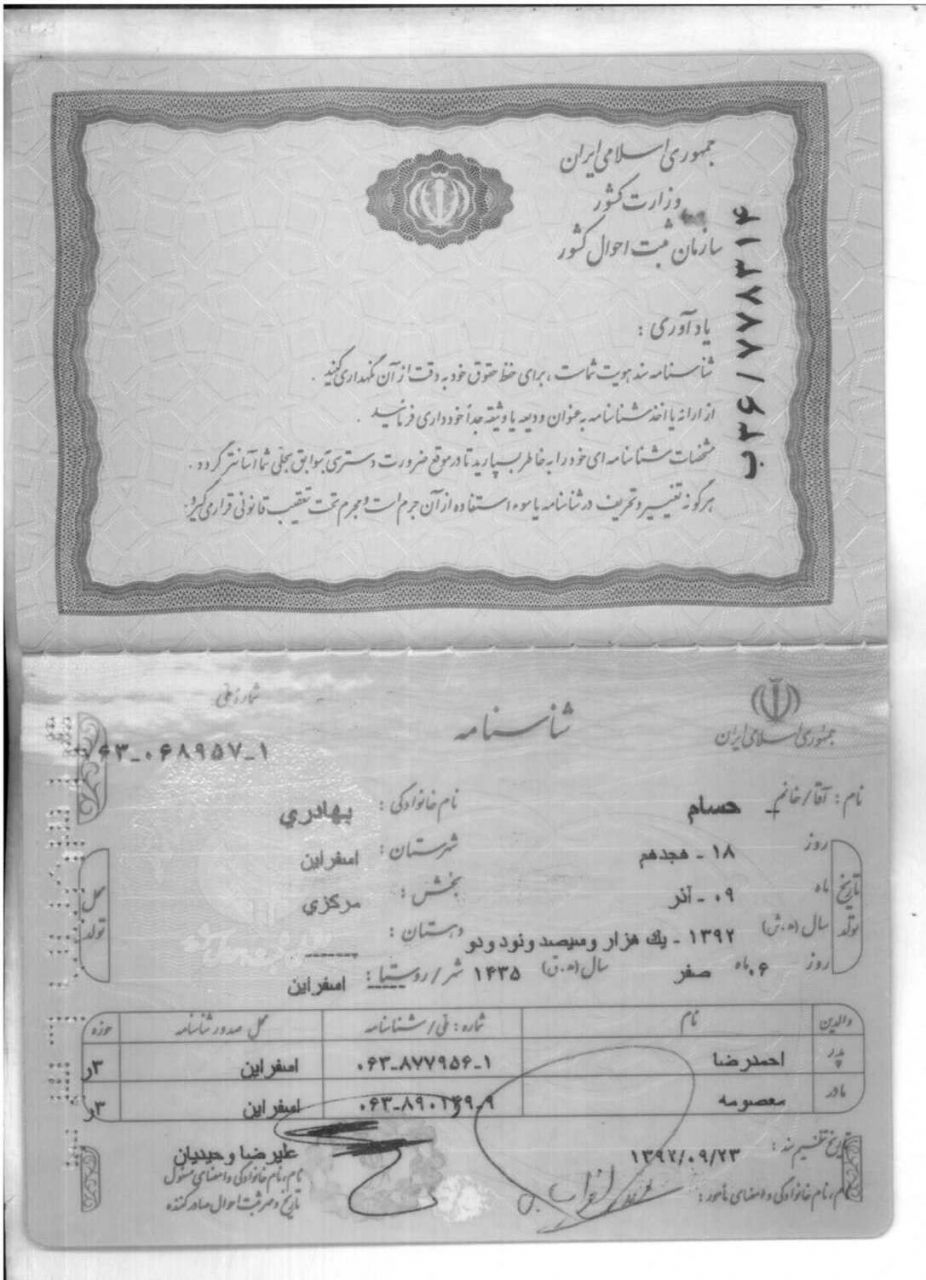 جمهوری اسلامی ایران
وزارت کشور
سازمان ثبت احوال کشور
ب۳۶/۷۷۸۳۱۴
یادآوری :
شناسنامه سند هویت شماست ، برای حفظ حقوق خود به دقت از آن نگهداری کنید .
از ارائه یا اخذ شناسنامه به عنوان ودیعه یا وثیقه جداً خودداری فرمائید .
مشخصات شناسنامه ای خود را به خاطر بسپارید تا در موقع ضرورت دسترسی به سوابق سجلی شما آسانتر گردد .
هرگونه تغییر و تحریف در شناسنامه یا سوء استفاده از آن جرم است و مجرم تحت تعقیب قانونی قرار می گیرد .
جمهوری اسلامی ایران
شناسنامه
شماره ملی
۰۶۳-۰۶۸۹۵۷-۱
نام : آقا/خانم حسام نام خانوادگی : بهادري
تاریخ تولد
روز ۱۸ - هجدهم شهرستان : اسفراین
ماه ۰۹ - آذر بخش : مركزي
سال (ه.ش) ۱۳۹۲ - يك هزار وسيصد ونود ودو دهستان : -------
روز ۶ ماه صفر سال (ه.ق) ۱۴۳۵ شهر/روستا : اسفراین
محل تولد
والدین نام شماره : ملی/شناسنامه محل صدور شناسنامه حوزه
پدر احمدرضا ۰۶۳-۸۷۷۹۵۶-۱ اسفراین ۳ر
مادر معصومه ۰۶۳-۸۹۰۱۴۹-۹ اسفراین ۳ر
تاریخ تنظیم سند : ۱۳۹۲/۰۹/۲۳ علیرضا وحیدیان
نام، نام خانوادگی و امضای مأمور :
نام، نام خانوادگی و امضای مسئول
تاریخ و مهر ثبت احوال صادر کننده